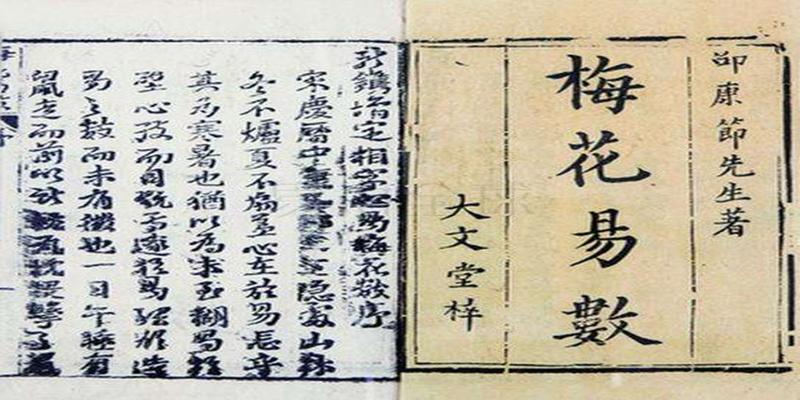 邵康節先生著
梅花易數
大文堂梓
新鐫增定相字心易梅花數序
宋慶曆中隱處山林
冬不爐夏不扇蓋心在於易忘乎
其為寒暑也猶以為未至糊易於
壁心致而目翫焉邃於易理欲造
易之數而未有徵也一日午睡有
鼠走而前以所枕